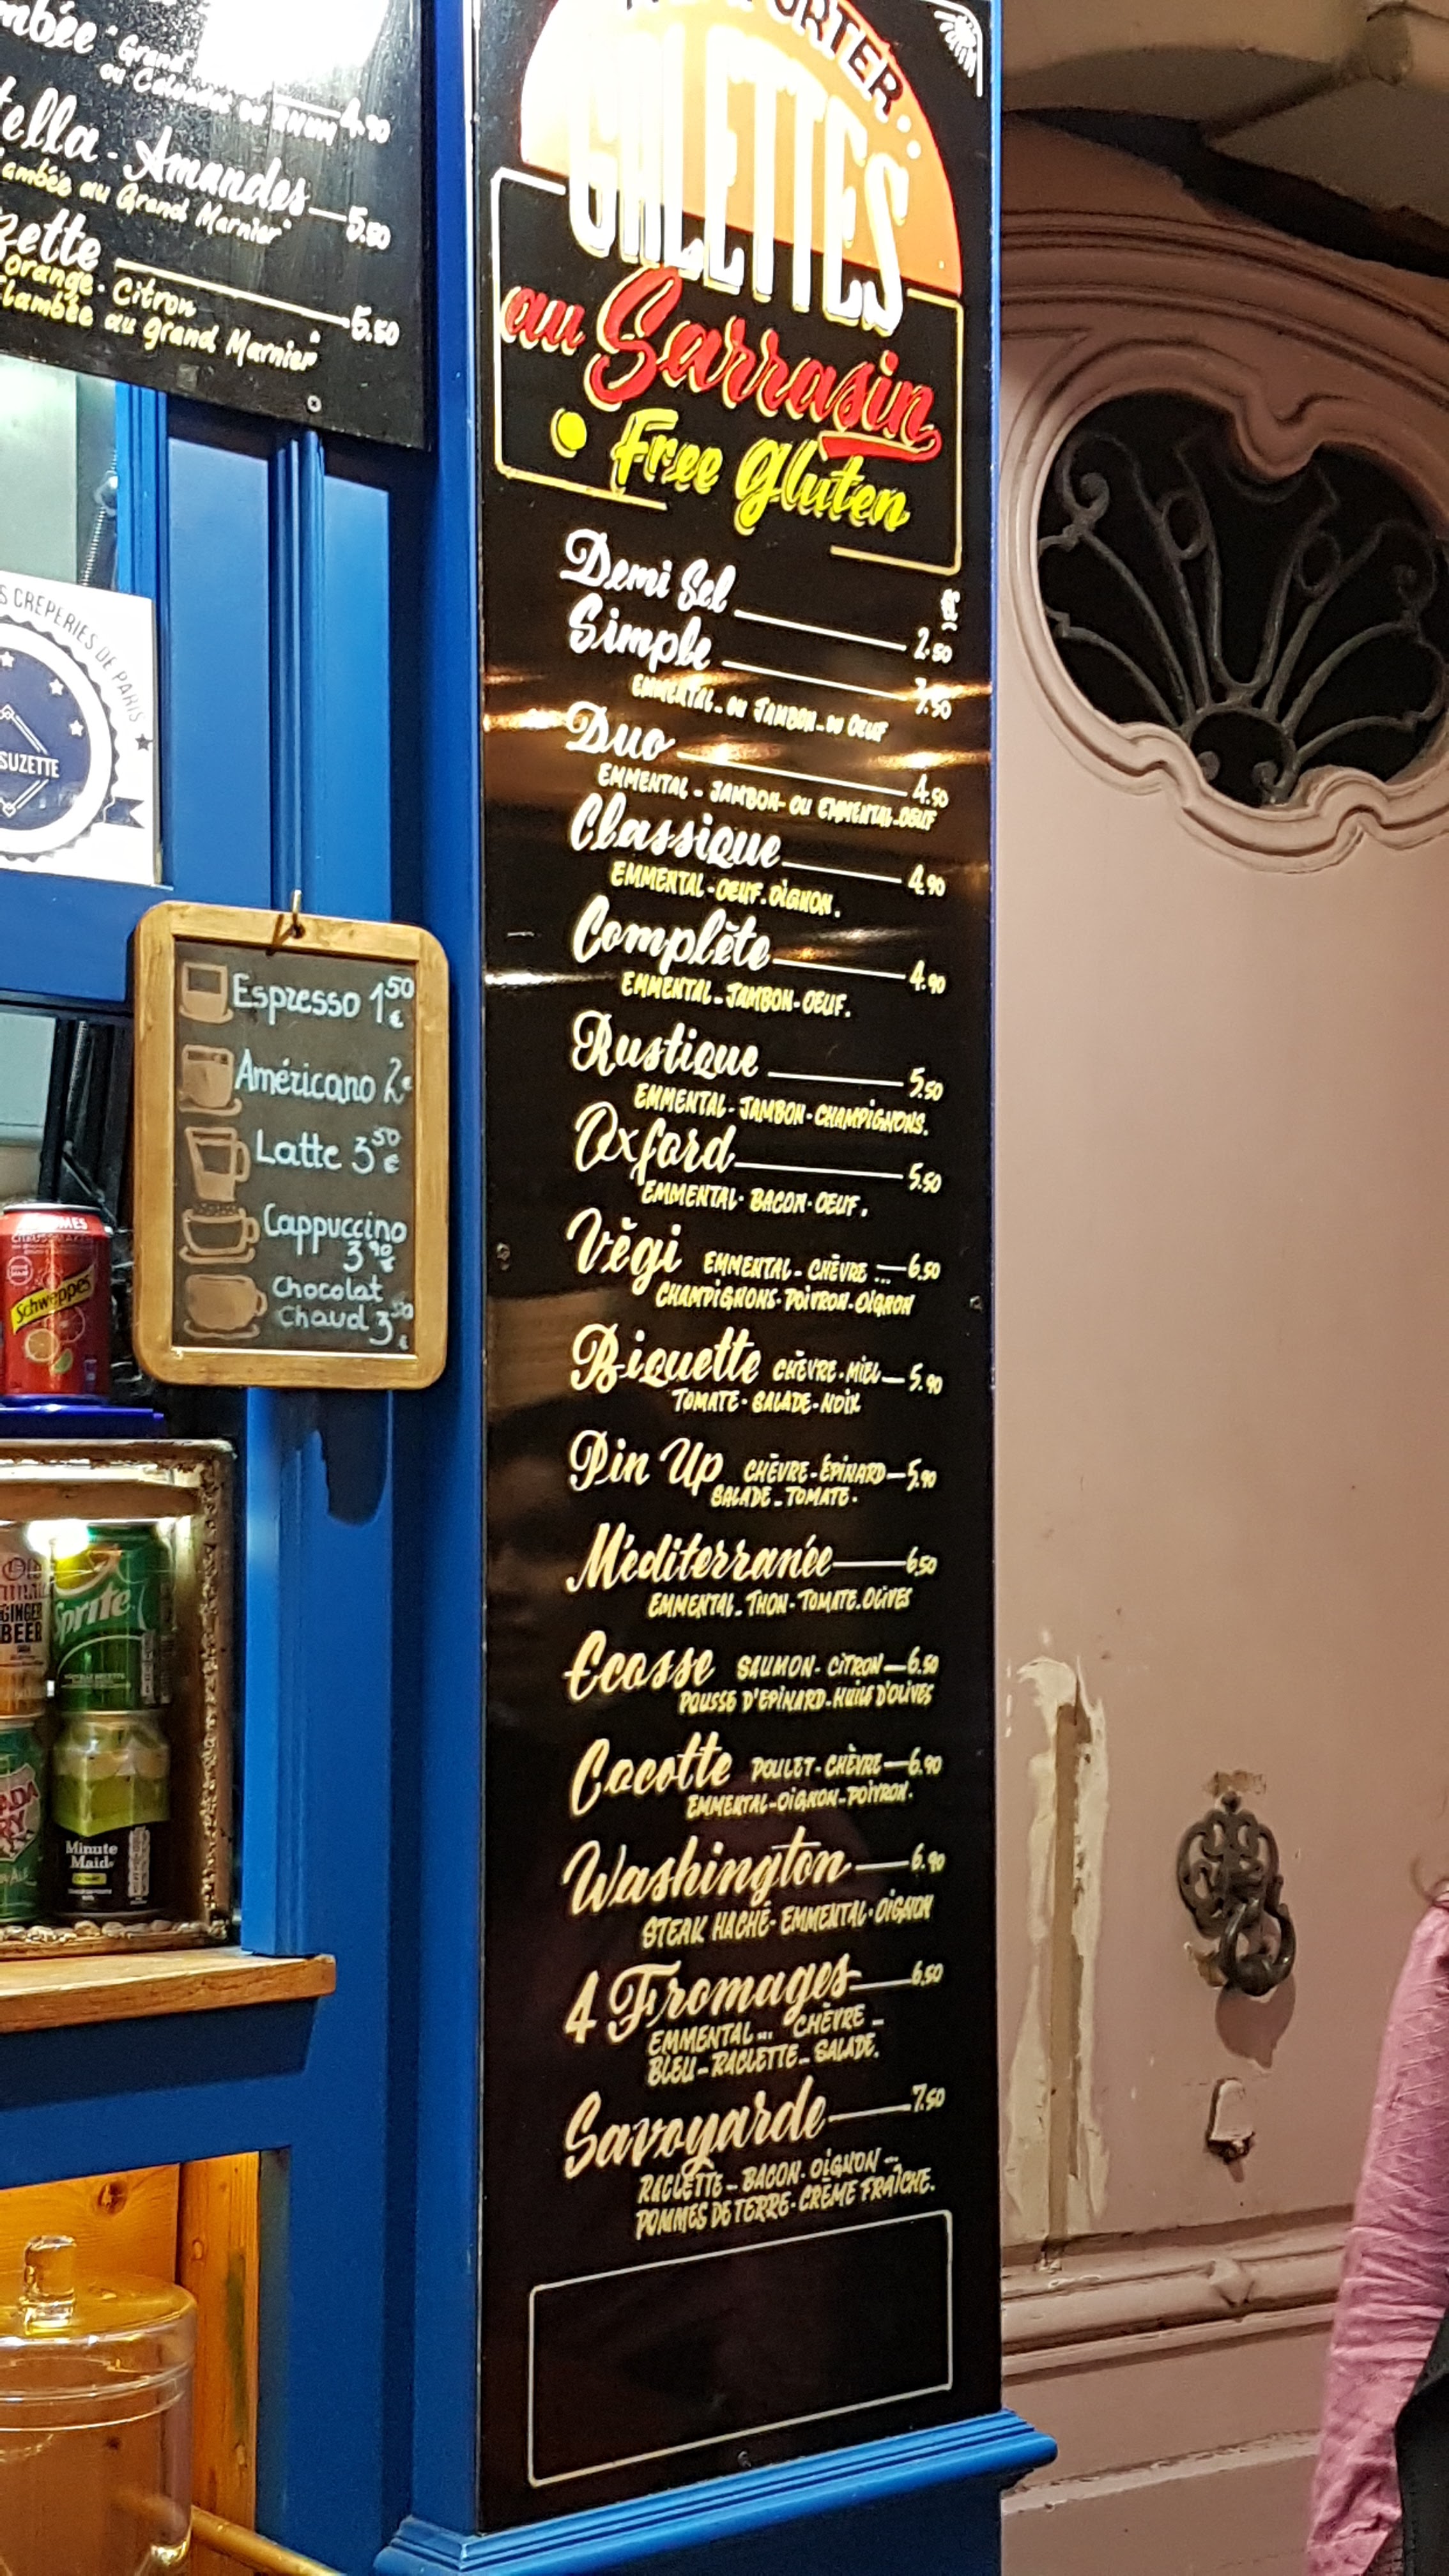 Grand
4.90
ou Calvados ou RHUM
Amandes 5.50
au Grand Marnier"
5.50
orange. Citron
Flambée au grand Marnier"
GALETTES
au Sarrasin
Free Gluten
Demi Sel 2.50
Simple 3.50
EMMENTAL - ou JAMBON - ou OEUF
Duo 4.50
EMMENTAL - JAMBON - OU EMMENTAL - OEUF
Classique 4.90
EMMENTAL - OEUF. OIGNON.
Complète 4.90
EMMENTAL - JAMBON - OEUF.
Rustique 5.50
EMMENTAL - JAMBON - CHAMPIGNONS.
Oxford 5.50
EMMENTAL - BACON - OEUF.
Vègi EMMENTAL - CHÈVRE ... 6.50
CHAMPIGNONS - POIVRON - OIGNON
Biquette CHÈVRE - MIEL 5.90
TOMATE - SALADE - NOIX
Pin Up CHÈVRE - ÉPINARD 5.90
SALADE - TOMATE.
Méditerranée 6.50
EMMENTAL - THON - TOMATE - OLIVES
Ecosse SAUMON - CITRON 6.50
POUSSE D'EPINARD - HUILE D'OLIVES
Cocotte POULET - CHÈVRE 6.90
EMMENTAL - OIGNON - POIVRON.
Washington 6.90
STEAK HACHÉ - EMMENTAL - OIGNON
4 Fromages 6.50
EMMENTAL ... CHÈVRE -
BLEU - RACLETTE - SALADE.
Savoyarde 7.50
RACLETTE - BACON - OIGNON -
POMMES DE TERRE - CRÈME FRAÎCHE.
CREPERIES DE PARIS
SUZETTE
Espresso 1.50 €
Américano 2€
Latte 3.50 €
Cappuccino
3.90 €
Chocolat
Chaud 3.50 €
Schweppes
GINGER
BEER
Sprite
Minute
Maid